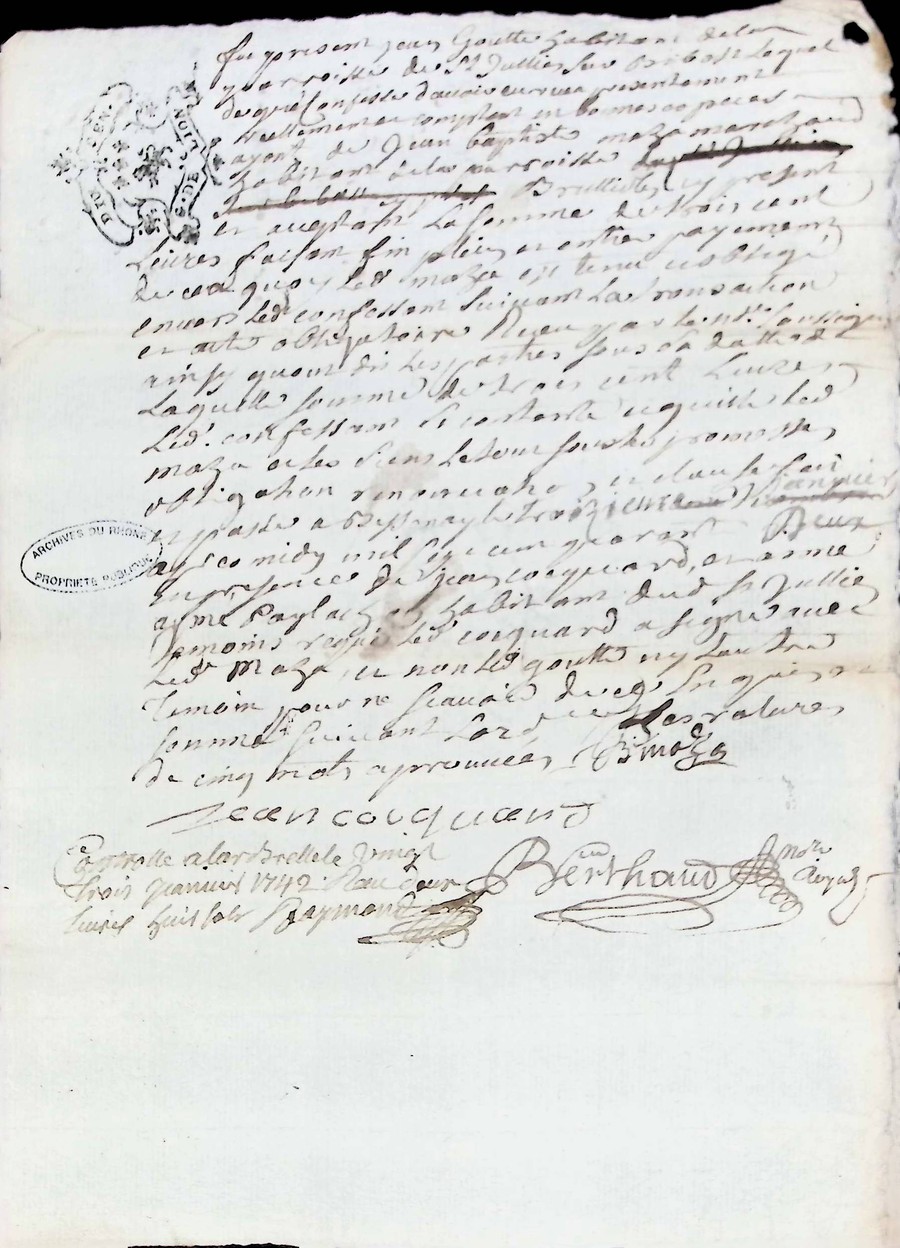 fut present jean Goutte habitant de la
parroisse de St Jullien sur Bibost lequel
de gré confesse d'avoir eu receu presentement
reellement et comptant en bonnes especes
ayant de Jean Baptiste maza marchand
habitant de la parroisse
Brullioles, cy present
et acceptant La somme de trois cent
Livres faisant fin plein et entier payement
de ce a quoy led maza est tenu et obligé
envers led confessant suivant la transaction
et acte obligatoire Receu par le nre soussigné
ainsy qu'ont dit les parties sous sa datte de
Laquelle somme de trois cent Livres
Led. confessant se contente et quitte led
maza et les siens le tout sous les promesses
obligation renonciation, et clauses fait
et passé a Bessenay le troizieme janvier
apres midy mil sept cent quarant Deux
en presence de jean cocquard, et
habitant dud St Jullien
temoins requis led cocquard a signé avec
Led Maza, et non led goutte ny l'autre
temoin pour ne scavoir de ce enquis et
sommé suivant L'ord Les ratures
de cinq mots approuvées JB maza
Jean cocquard
Controllé a larbresle le vingt
trois janvier 1742 Recu deux
livres huit sols Raymond
Berthaud
No.re
Royal
G. DE LION
GEN.
ARCHIVES DU RHONE
PROPRIETE PUBLIQUE